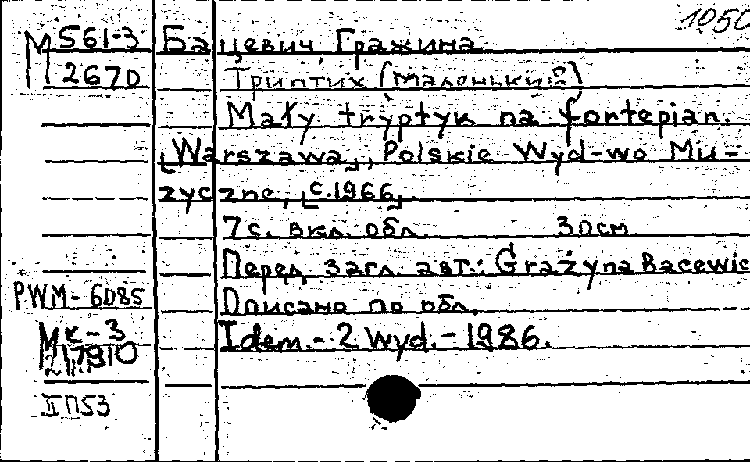 1950
М 561-3
267D
Бацевич, Гражина
Триптих (Маленький)
Mały tryptyk na fortepian.
[Warszawa], Polskie Wyd-wo Mu-
zyczne, [c.1966].
7 с. вкл. обл. 30см
Перед загл. авт.: Grażyna Bacewic
Описано по обл.
PWM-6085
Idem. - 2 wyd. - 1986.
Мк-3
217810
II П53